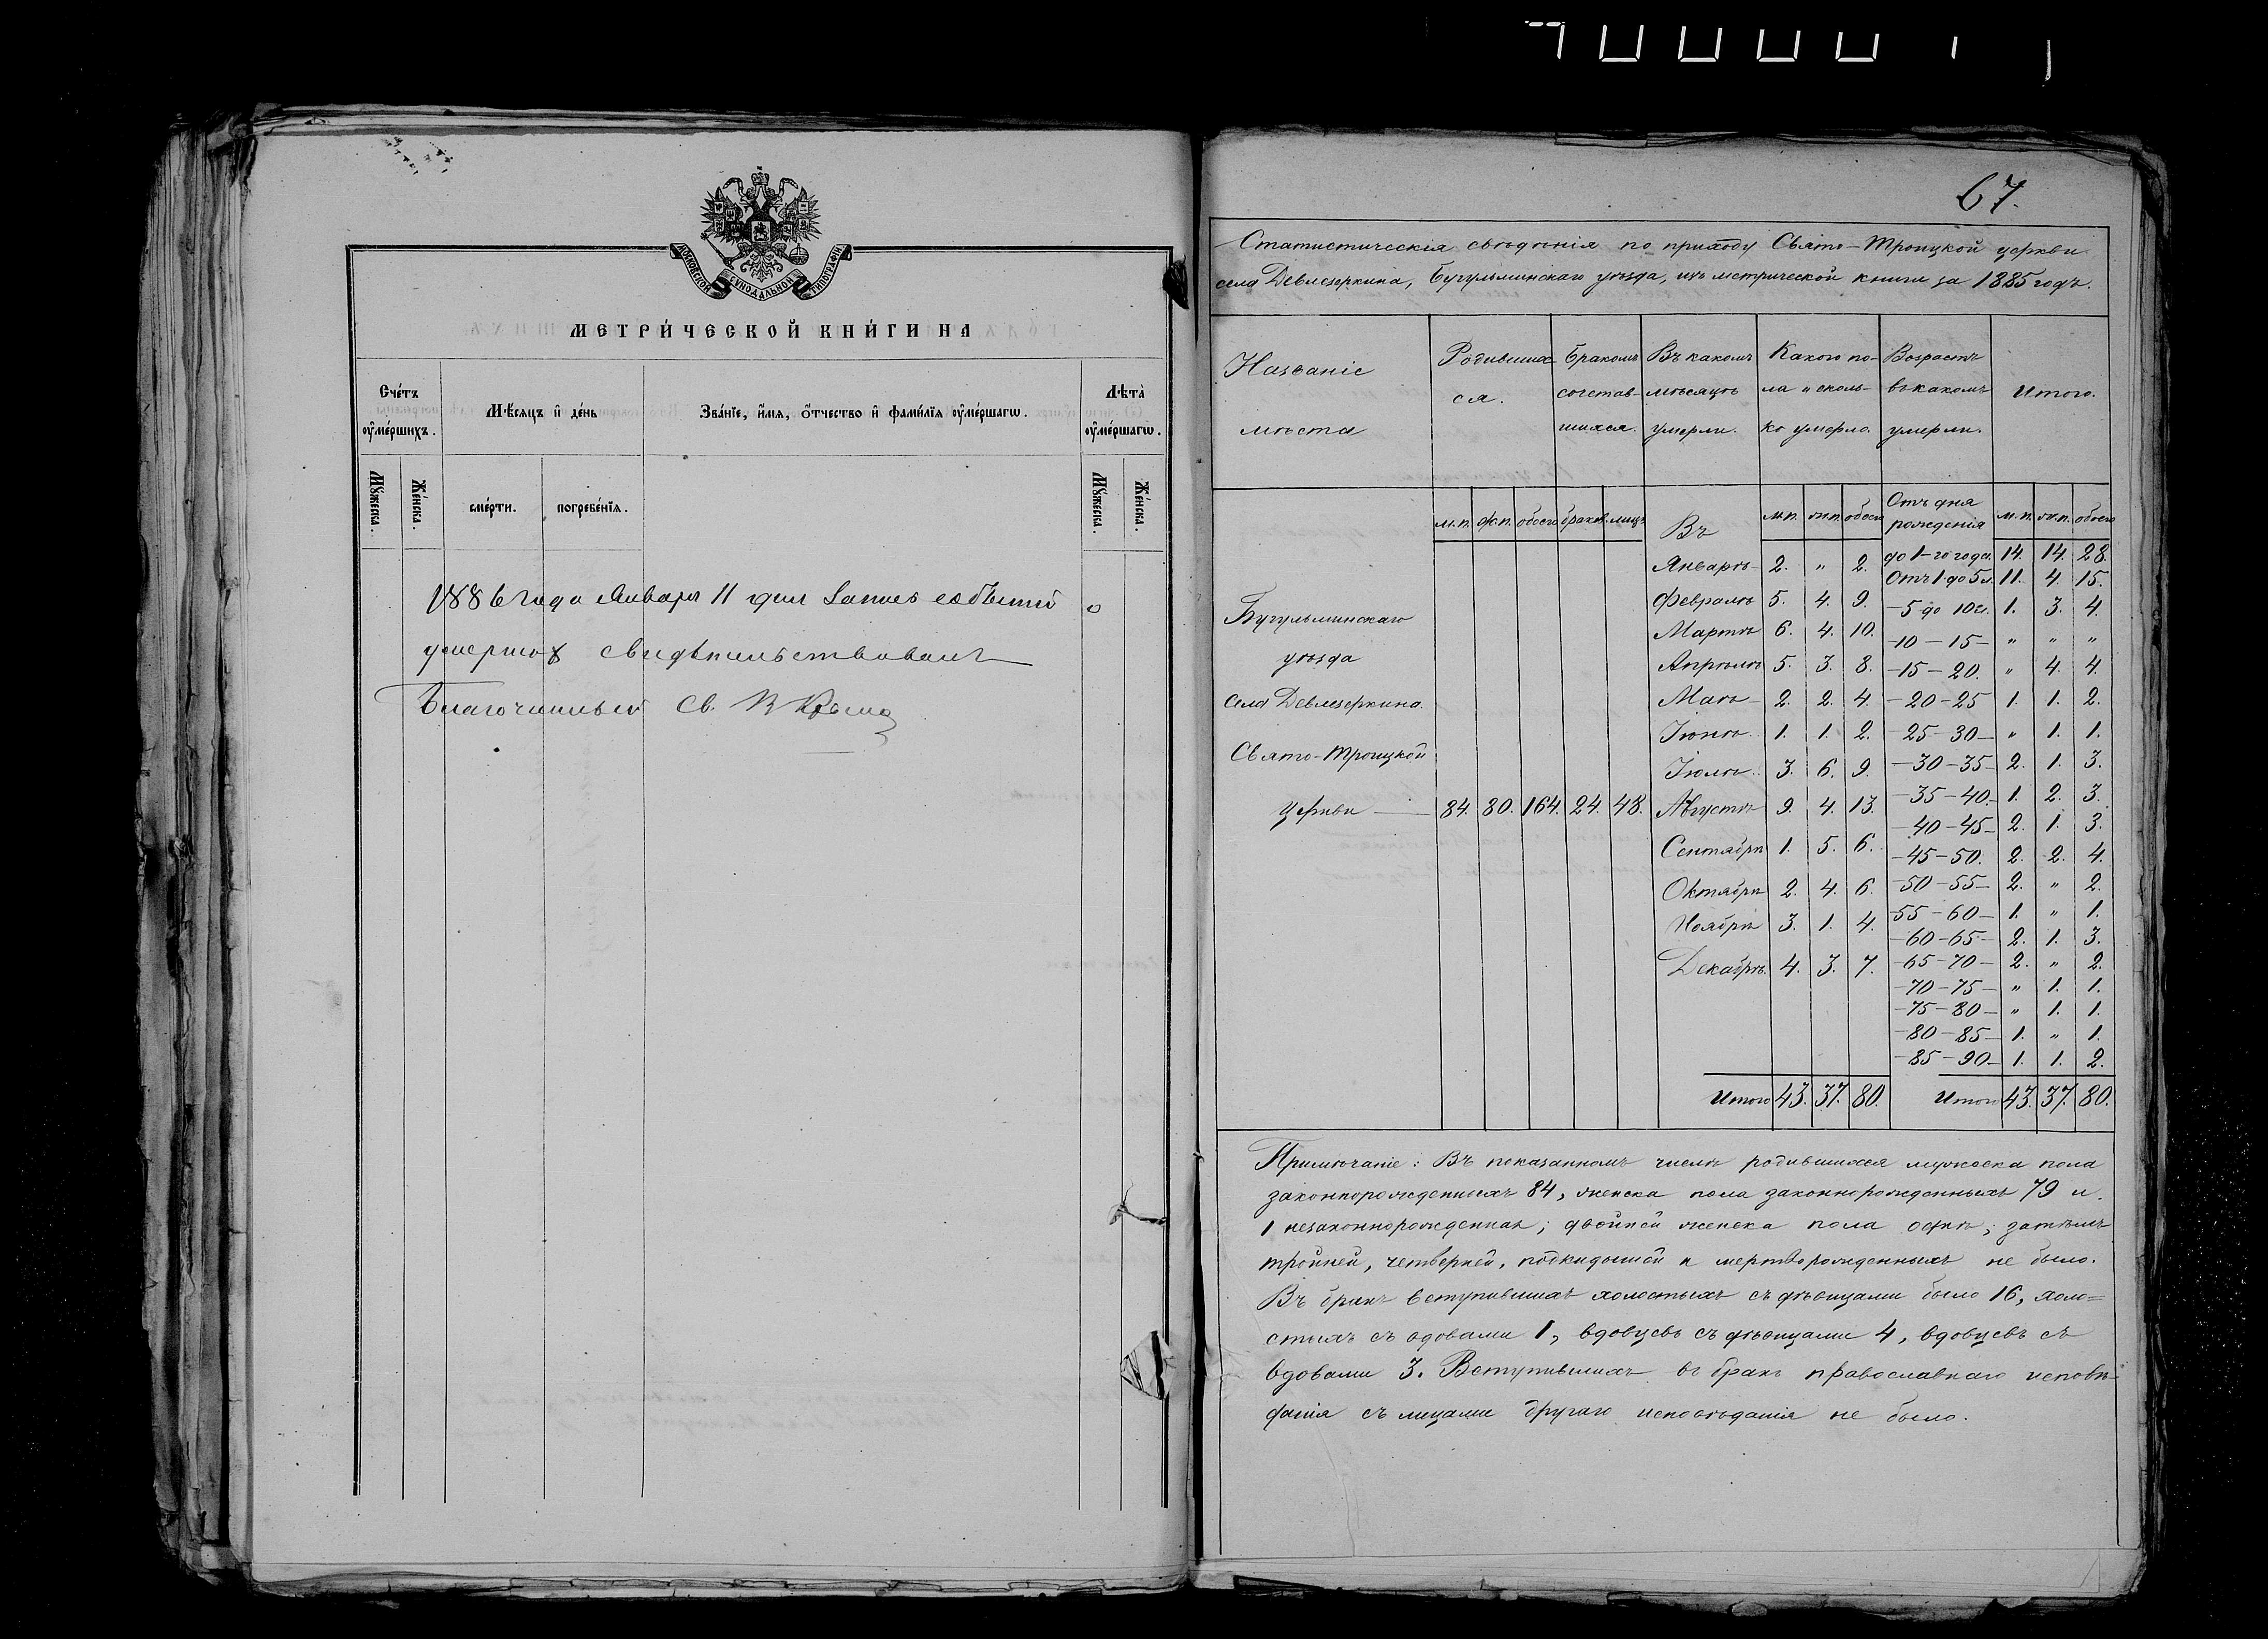 МОСКОВСКОЙ СѴНОДАЛЬНОЙ ТИПОГРАФІИ
МЕТРИ́ЧЕСКОЙ КНИ́ГИ НА
Счéтъ ᲂу҆мéршихъ.
Мѣ́сяцъ и҆ дéнь
Звáнїе, и҆́мѧ, ѻ҆́тчество и҆ фами́лїѧ ᲂу҆мéршагѡ.
Лѣ́та ᲂу҆мéршагѡ.
Мꙋ́жеска.
Жéнска.
смéрти.
погребéнїѧ.
Мꙋ́жеска.
Жéнска.
1886 года Января 11 дня запись событій о
умершихъ свидѣтельствовалъ
Благочинный Св.
67.
Статистическія свѣдѣнія по приходу Свято-Троицкой церкви
села Девлезеркина, Бугульминскаго уѣзда, изъ метрической книги за 1885 годъ.
Названіе мѣста
Родившихся.
Бракомъ сочетавшихся.
Въ какомъ мѣсяцѣ умерли.
Какого пола и сколько умерло.
Возрастъ въ какомъ умерли.
Итого.
м.п. ж.п. обоего браков. лицъ Въ м.п. ж.п. обоего Отъ дня рожденія м.п. ж.п. обоего
Бугульминскаго
уѣзда
села Девлезеркина
Свято-Троицкой
церкви — 84. 80. 164. 24. 48.
Январѣ 2. " 2.
Февралѣ 5. 4. 9.
Мартѣ 6. 4. 10.
Апрѣлѣ 5. 3. 8.
Маѣ 2. 2. 4.
Іюнѣ 1. 1. 2.
Іюлѣ 3. 6. 9.
Августѣ 9. 4. 13.
Сентябрѣ 1. 5. 6.
Октябрѣ 2. 4. 6.
Ноябрѣ 3. 1. 4.
Декабрѣ 4. 3. 7.
Итого 43. 37. 80.
до 1-го года. 14. 14. 28.
Отъ 1 до 5 л. 11. 4. 15.
— 5 до 10 л. 1. 3. 4.
— 10 — 15 — " " "
— 15 — 20. " 4. 4.
— 20 — 25 1. 1. 2.
25 — 30 — " 1. 1.
— 30 — 35 — 2. 1. 3.
— 35 — 40 — 1. 2. 3.
— 40 — 45 — 2. 1. 3.
— 45 — 50. 2. 2. 4.
— 50 — 55 — 2. " 2.
55 — 60 — 1. " 1.
— 60 — 65 — 2. 1. 3.
— 65 — 70 — 2. " 2.
— 70 — 75 — " 1. 1.
— 75 — 80 — " 1. 1.
— 80 — 85 — 1. " 1.
— 85 — 90 — 1. 1. 2.
Итого 43. 37. 80.
Примѣчаніе: Въ показанномъ числѣ родившихся мужеска пола
законнорожденныхъ 84, женска пола законнорожденныхъ 79 и
1 незаконнорожденная; двойней женска пола однѣ; затѣмъ
тройней, четверней, подкидышей и мертворожденныхъ не было.
Въ бракъ вступившихъ холостыхъ съ дѣвицами было 16, холо=
стыхъ съ вдовами 1, вдовцевъ съ дѣвицами 4, вдовцевъ съ
вдовами 3. Вступившихъ въ бракъ православнаго исповѣ-
данія съ лицами другаго исповѣданія не было.